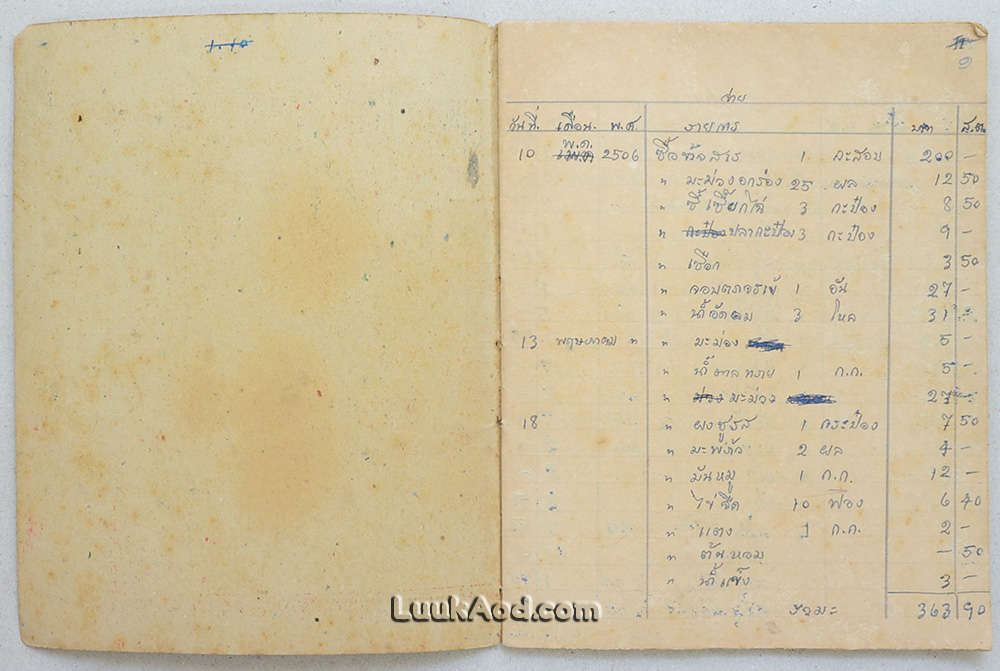 1.10
๑
จ่าย
วันที่. เดือน. พ.ศ. รายการ บาท ส.ต.
พ.ด.
10 2506 ซื้อข้าวสาร 1 กะสอบ 200 -
" มะม่วงอกร่อง 25 ผล 12 50
" ซี้เซี้ยกไฉ่ 3 กะป๋อง 8 50
" ปลากะป๋อง 3 กะป๋อง 9 -
" เชือก 3 50
" จอบตราจรเข้ 1 อัน 27 -
" น้ำอัดลม 3 โหล 31
13 พฤษภาคม " " มะม่วง 5 -
" น้ำตาลทราย 1 ก.ก. 5 -
" มะม่วง 27
18 " ผงชูรส 1 กระป๋อง 7 50
" มะพร้าว 2 ผล 4 -
" มันหมู 1 ก.ก. 12 -
" ไข่จืด 10 ฟอง 6 40
" แตง 1 ก.ก. 2 -
" ต้นหอม - 50
" น้ำแข็ง 3 -
363 90
LuukAod.com